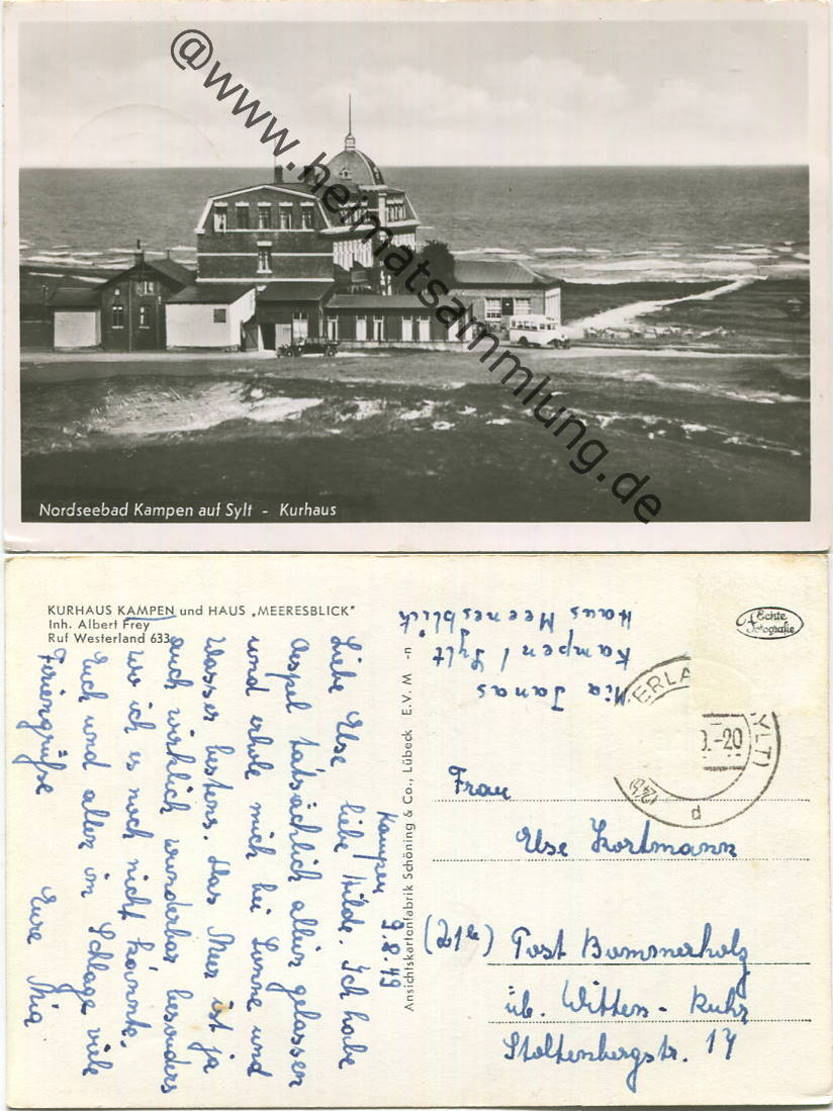 @www.heimatsammlung.de
Nordseebad Kampen auf Sylt - Kurhaus
KURHAUS KAMPEN und HAUS „MEERESBLICK"
Inh. Albert Frey
Ruf Westerland 633
Echte Fotografie
Mia Janas
Kampen / Sylt
Haus Meeresblick
ERLA
YLT)
-20
(24b)
d
Ansichtskartenfabrik Schöning & Co., Lübeck E.V.M -n
Kampen
9.8.49
Liebe Else, liebe Hilde. Ich habe
Aespel tatsächlich allein gelassen
und erhole mich bei Sonne und
Wasser bestens. Das Meer ist ja
auch wirklich wunderbar besonders
wo ich es noch nicht kannte.
Euch und allen im Schlage viele
Feriengrüße
Eure Mia.
Frau
Else Kortmann
(21b) Post Bommerholz
üb. Witten - Ruhr
Stoltenbergstr. 17